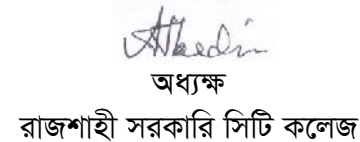 অধ্যক্ষ
রাজশাহী সরকারি সিটি কলেজ